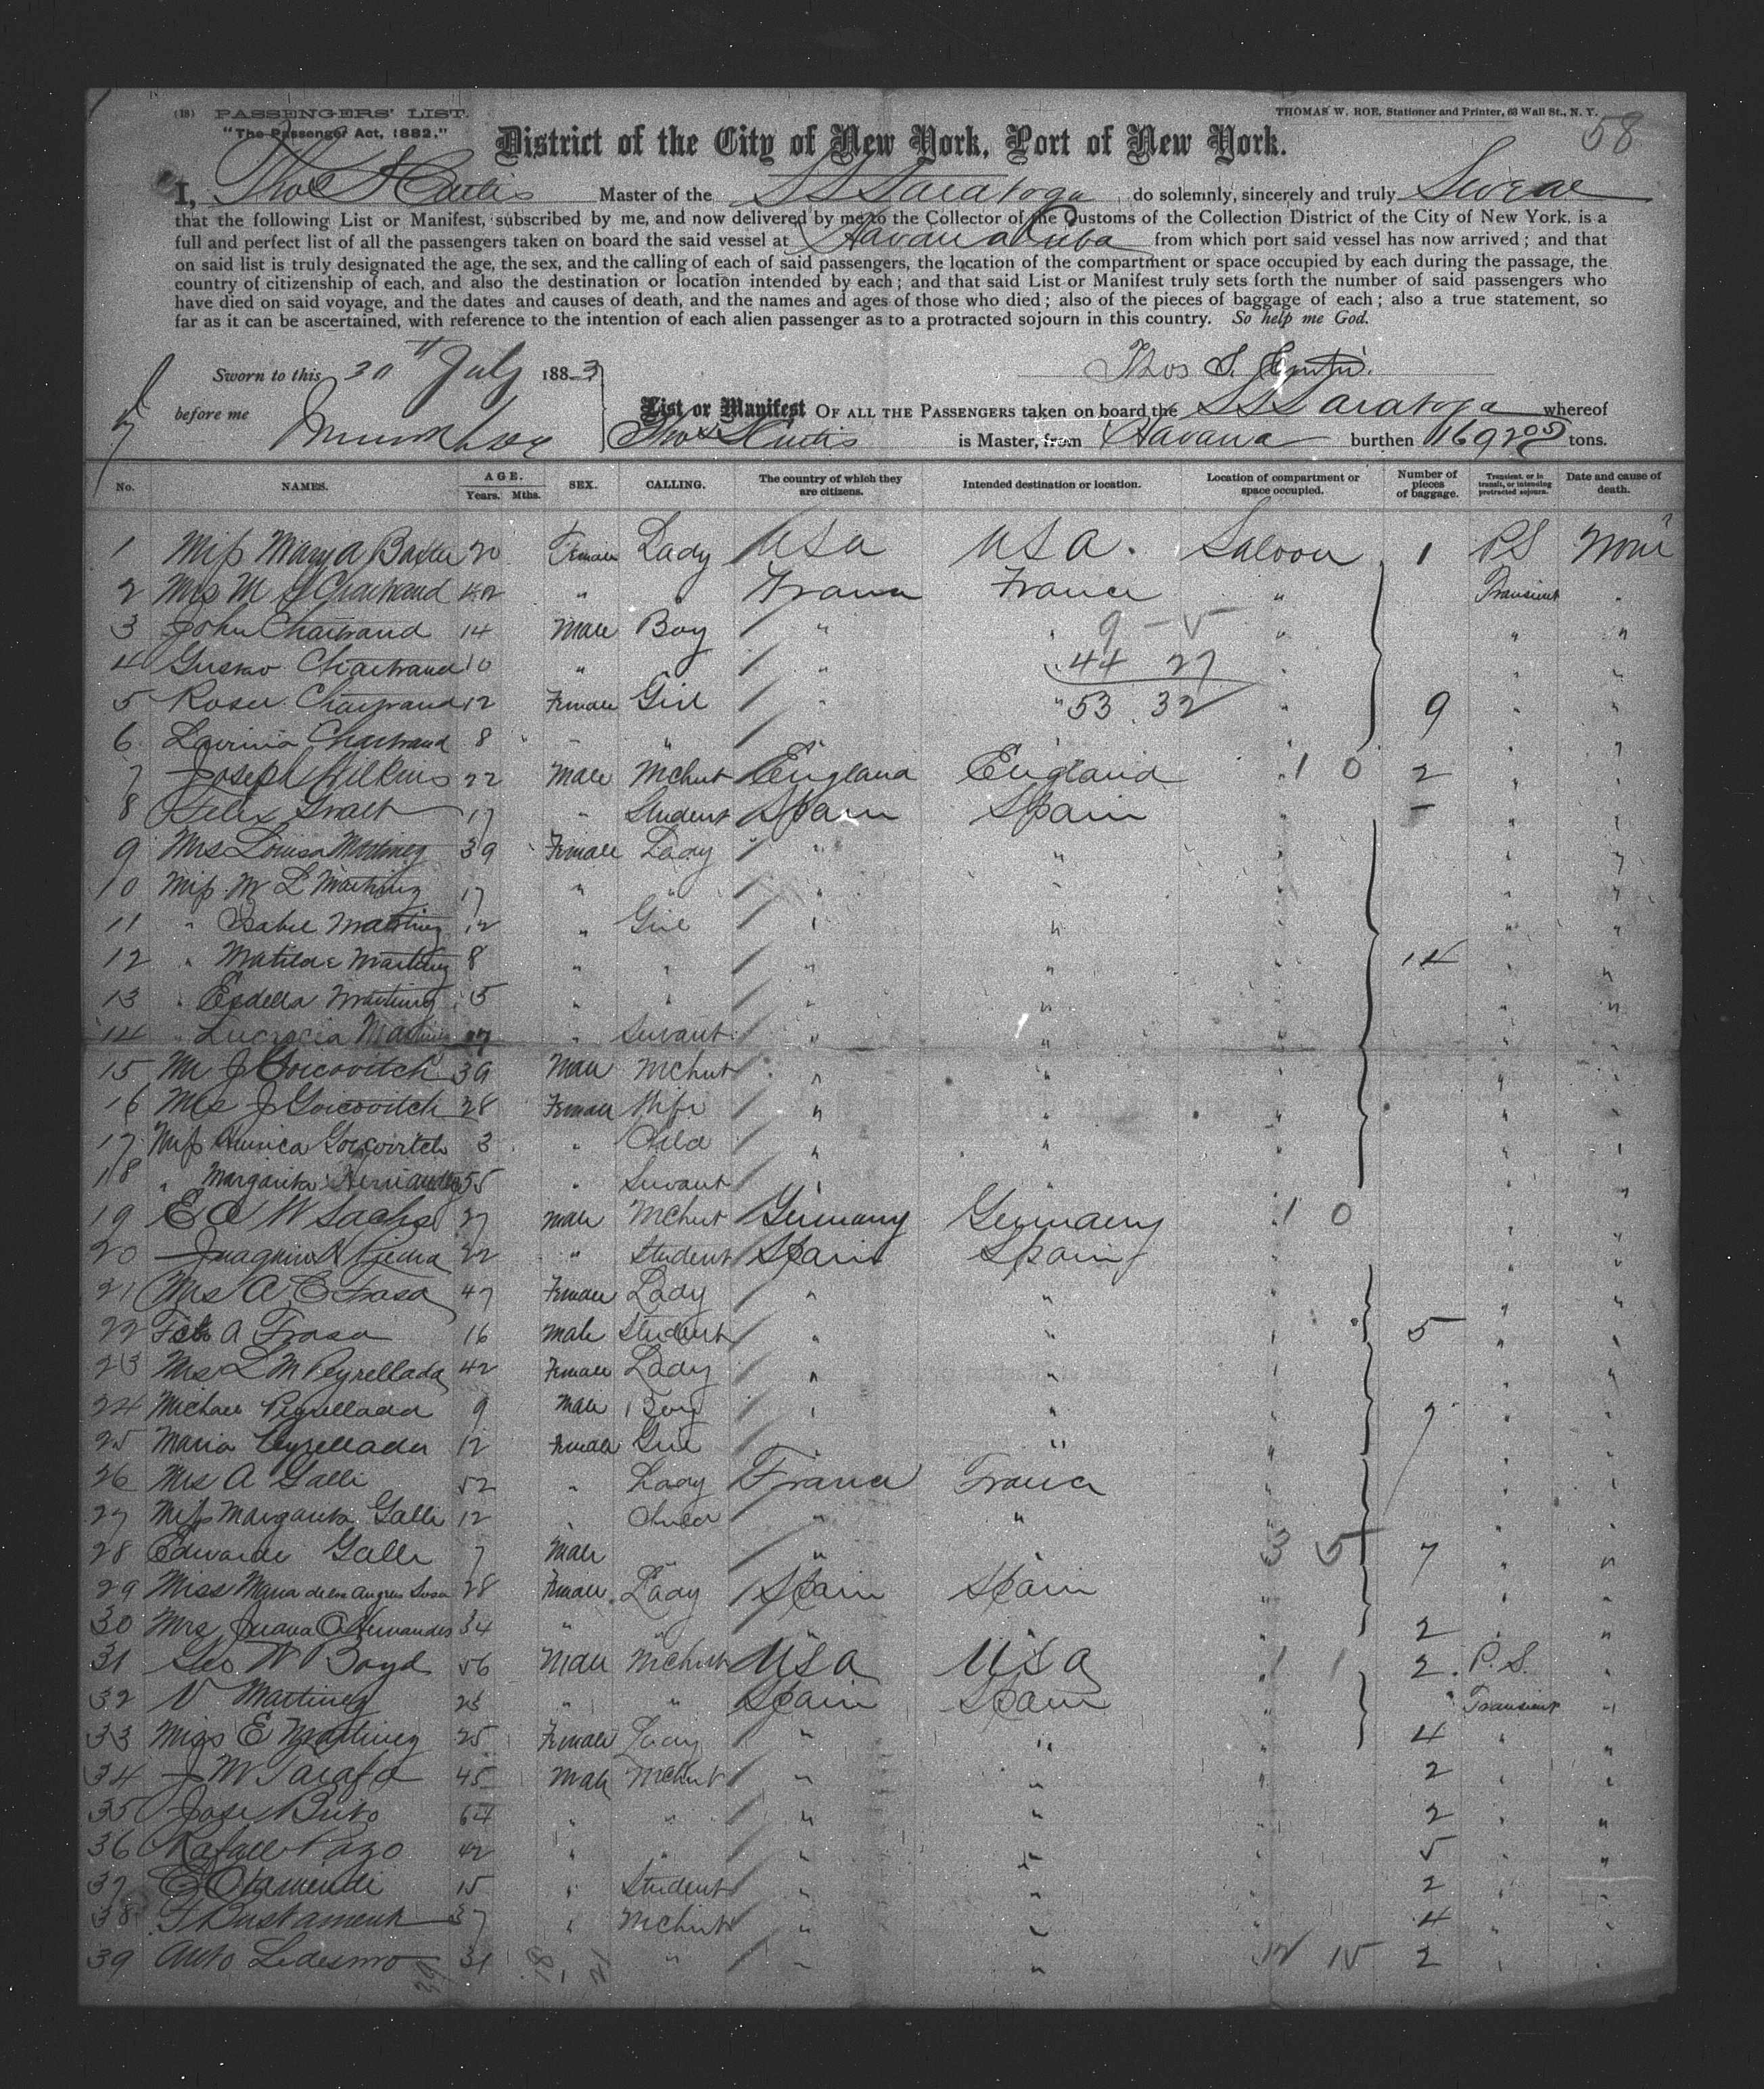 (18) PASSENGERS' LIST. THOMAS W. ROE, Stationer and Printer, 63 Wall St., N. Y.
"The Passenger Act, 1882." 58
District of the City of New York, Port of New York.
I, Thos S Curtis Master of the SS Saratoga do solemnly, sincerely and truly Swear
that the following List or Manifest, subscribed by me, and now delivered by me to the Collector of the Customs of the Collection District of the City of New York, is a
full and perfect list of all the passengers taken on board the said vessel at Havana Cuba from which port said vessel has now arrived; and that
on said list is truly designated the age, the sex, and the calling of each of said passengers, the location of the compartment or space occupied by each during the passage, the
country of citizenship of each, and also the destination or location intended by each; and that said List or Manifest truly sets forth the number of said passengers who
have died on said voyage, and the dates and causes of death, and the names and ages of those who died; also of the pieces of baggage of each; also a true statement, so
far as it can be ascertained, with reference to the intention of each alien passenger as to a protracted sojourn in this country. So help me God.
Sworn to this 30th July 1883 Thos S. Curtis.
before me List or Manifest OF ALL THE PASSENGERS taken on board the SS Saratoga whereof
Thos S Curtis is Master, from Havana burthen 1692 05 tons.
No. NAMES. AGE. Years. Mths. SEX. CALLING. The country of which they are citizens. Intended destination or location. Location of compartment or space occupied. Number of pieces of baggage. Transient, or in transit, or intending protracted sojourn. Date and cause of death.
1 Miss Mary A Baxter 20 Female Lady USa USa. Saloon 1 PS None
2 Mrs M Chartrand 42 " " France France " Transient "
3 John Chartrand 14 Male Boy " " 9 - 5 " " "
4 Chartrand 10 " " " 44 27 " " "
5 Rosa Chartrand 12 Female Girl " " 53. 32 " 9 " "
6 Lavinia Chartrand 8 " " " " " " "
7 Joseph Wilkins 22 Male Mchnt England England " 1 0 2 " "
8 Felix 17 " Student Spain Spain " - " "
9 Mrs Louisa Martinez 39 Female Lady " " " " "
10 Miss M L Martinez 17 " " " " " " "
11 " Isabel Martinez 12 " Girl " " " " "
12 " Matilde Martinez 8 " " " " " 14 " "
13 " Martinez 5 " " " " " " "
14 " Lucrecia Martinez " Servant " " " " "
15 Mr J Goicovitch 39 Male Mchnt " " " " "
16 Mrs J Goicovitch 28 Female Wife " " " " "
17 Miss Goicovitch 3 " Child " " " " "
18 " Margarita Hernandez 55 " Servant " " " " "
19 E W Sachs 27 Male Mchnt Germany Germany " 1 0 " "
20 Joaquin 22 " Student Spain Spain " " "
21 Mrs A E Frasa 47 Female Lady " " " " "
22 A Frasa 16 Male Student " " " 5 " "
23 Mrs L M Peyrellada 42 Female Lady " " " " "
24 Michael Peyrellada 9 Male Boy " " " 7 " "
25 Maria Peyrellada 12 Female Girl " " " " "
26 Mrs A Galli 52 " Lady France France " " "
27 Miss Margarita Galli 12 " Child " " " " "
28 Edwardo Galli 7 Male " " 3 5 7 " "
29 Miss Maria de los Angeles Sosa 28 Female Lady Spain Spain " " "
30 Mrs Juana Hernandes 34 " " " " " 2 " "
31 Geo. W Boyd 56 Male Mchnt USa USa " 1 1 2 P.S. "
32 V Martinez " " Spain Spain " " Transient "
33 Miss E Martinez 25 Female Lady " " " 4 " "
34 J M Tarafa 45 Male Mchnt " " " 2 " "
35 Jose Brito 64 " " " " " 2 " "
36 Rafael 42 " " " " " 5 " "
37 E Otamendi 15 " Student " " " 2 " "
38 F Bustament 37 " Mchnt " " " 4 " "
39 Anto Ledesmo 31 " " " " 12 15 2 " "
39 18 - 21